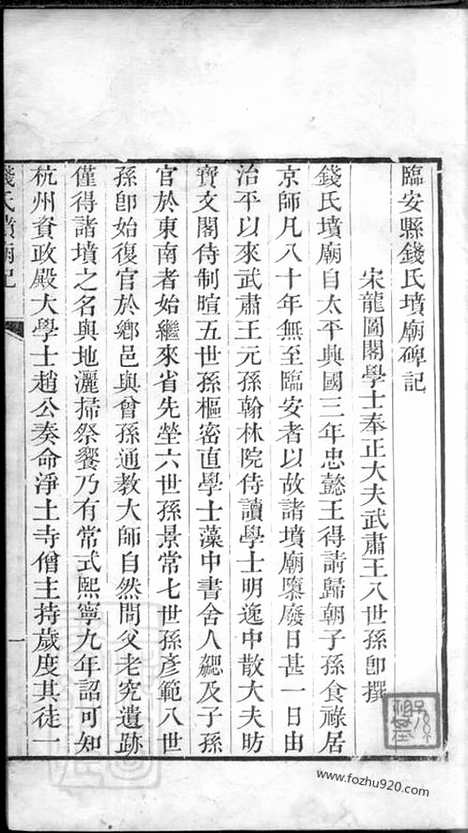 臨安縣錢氏墳廟碑記
宋龍圖閣學士奉正大夫武肅王八世孫即撰
錢氏墳廟自太平興國三年忠懿王得請歸朝子孫食祿居
京師凡八十年無至臨安者以故諸墳廟隳廢日甚一日由
治平以來武肅王元孫翰林院侍讀學士明逸中散大夫昉
寶文閣侍制暄五世孫樞密直學士藻中書舍人勰及子孫
官於東南者始繼來省先塋六世孫景常七世孫彥範八世
孫即始復官於鄉邑與曾孫通教大師自然問父老究遺跡
僅得諸墳之名與地灑掃祭饗乃有常式熙寧九年詔可知
杭州資政殿大學士趙公奏命淨土寺僧主持歲度其徒一
錢氏墳廟記
一
www.fozhu920.com